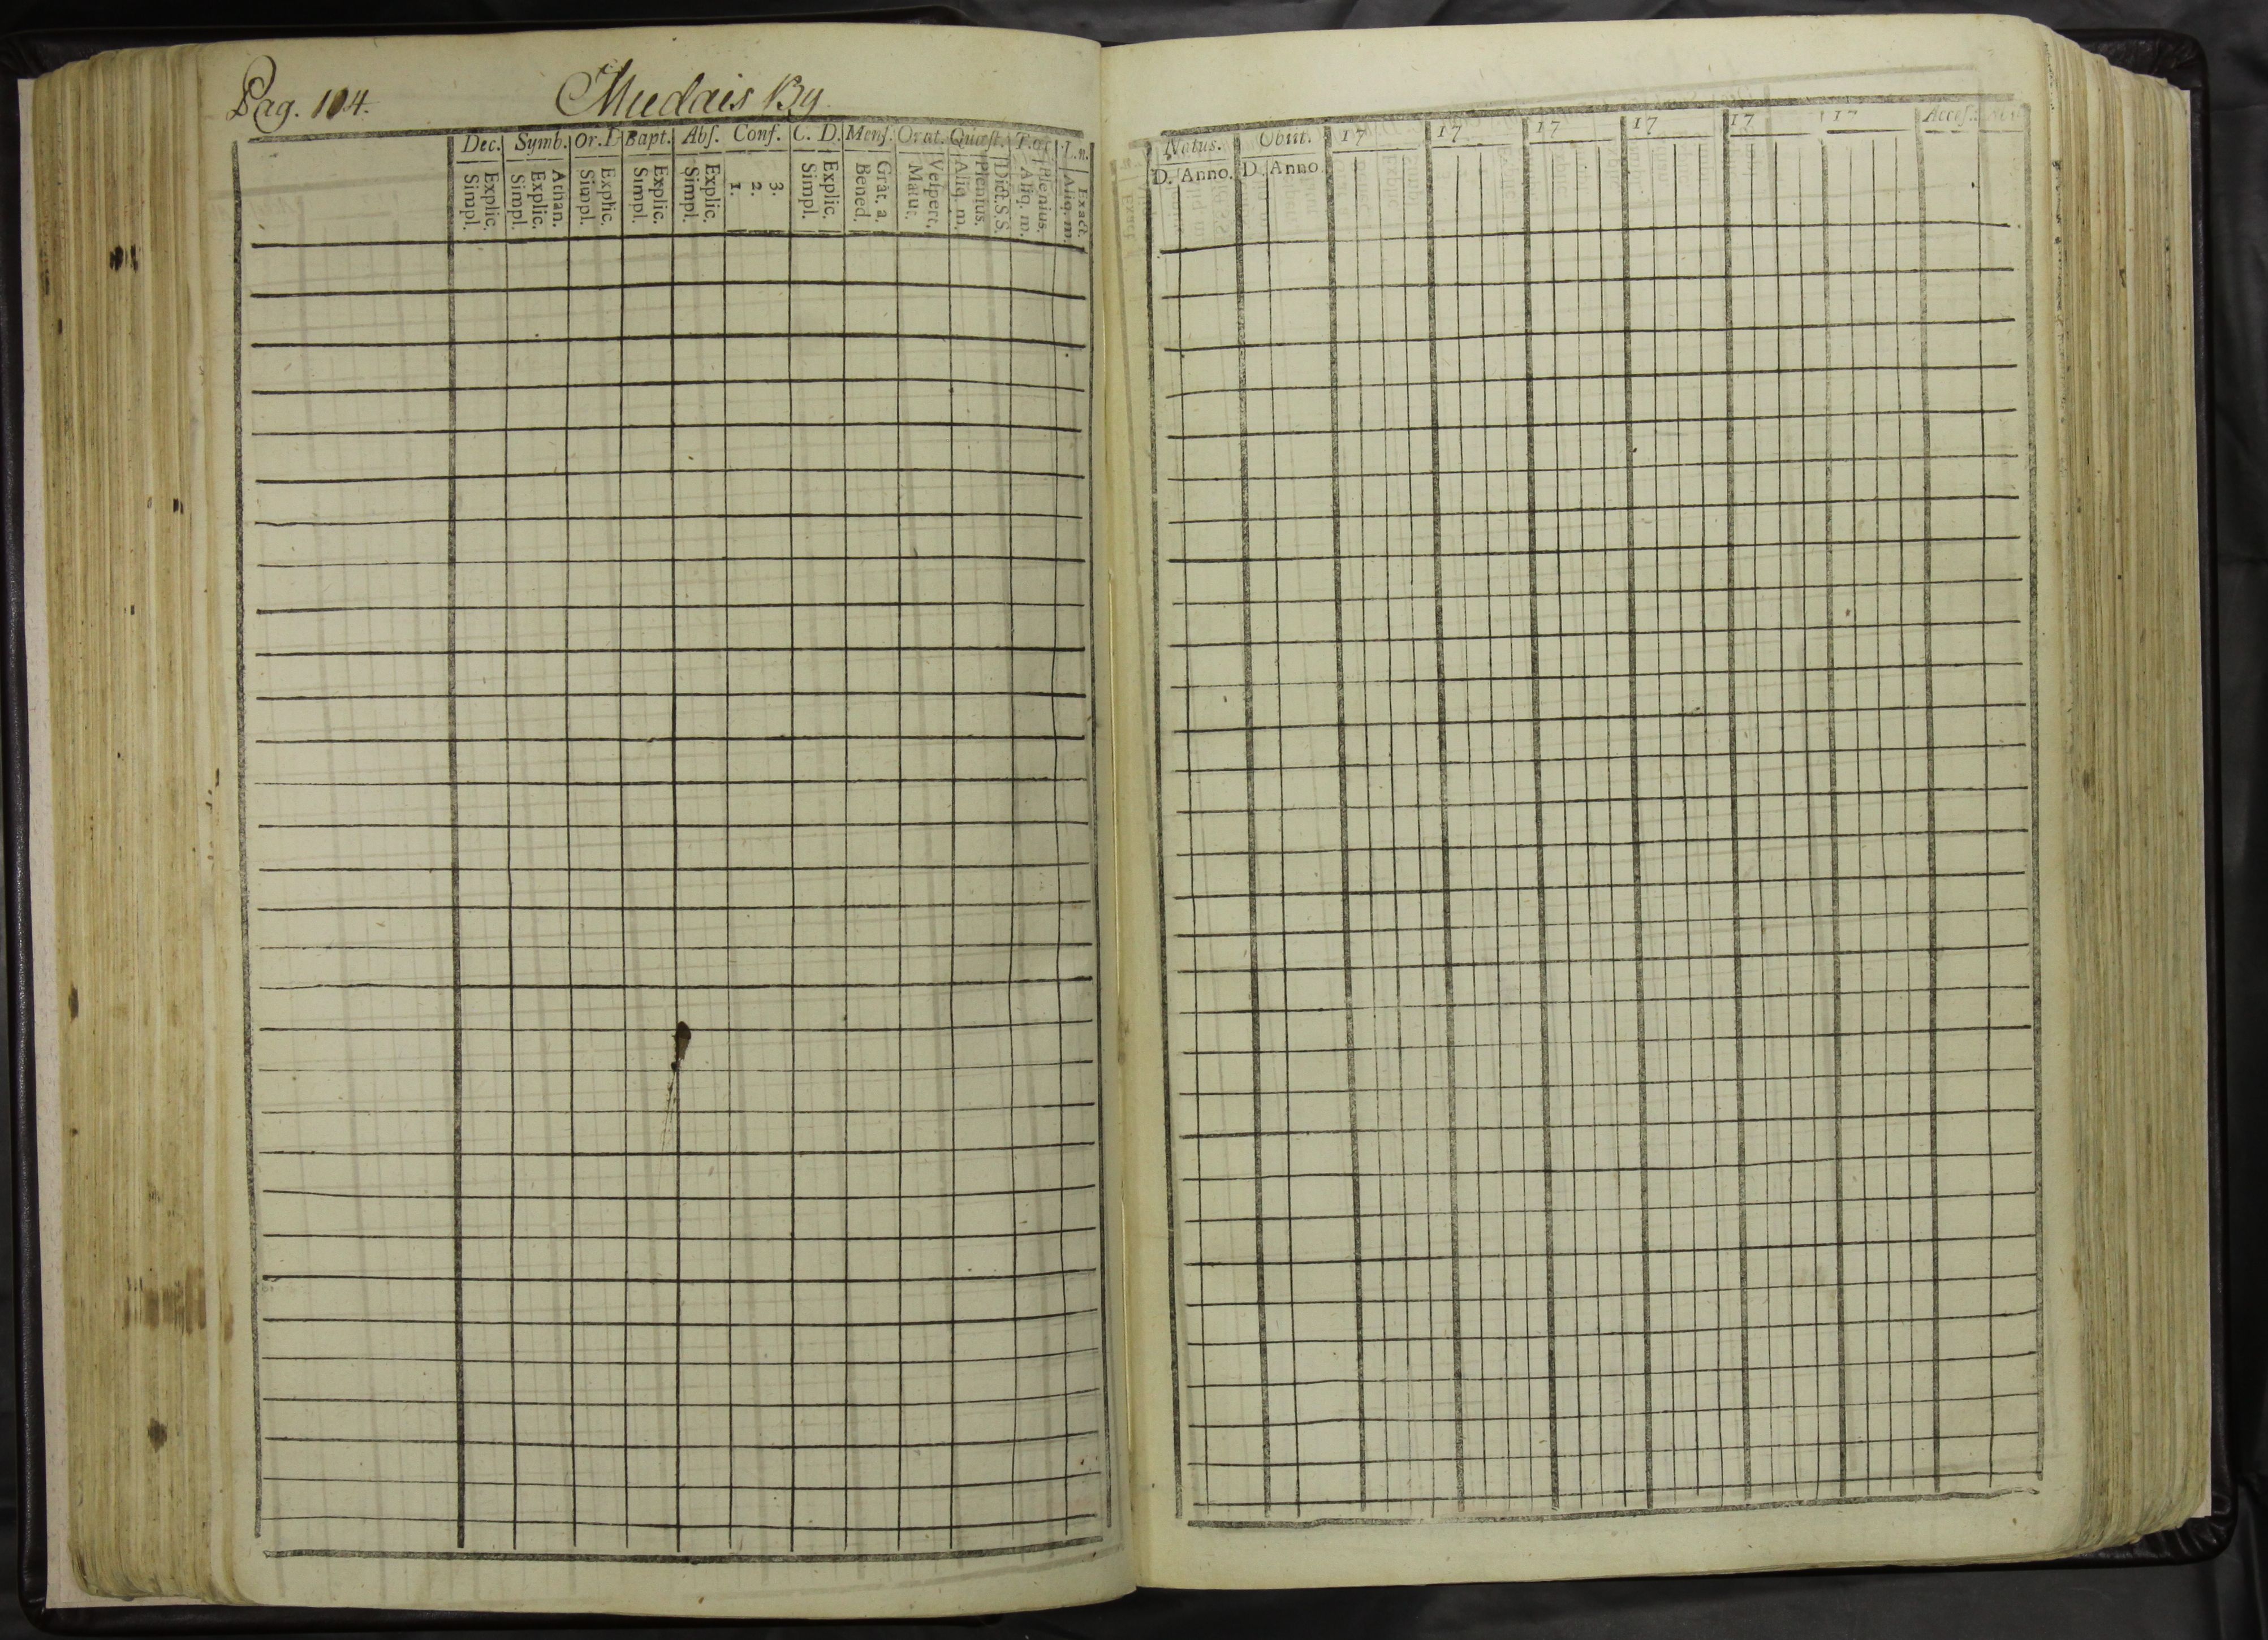 Pag. 104. Mudais By.
Dec. Symb. Or. D Bapt. Abſ. Conf. C. D. Menſ. Orat. Quæſt. T. a.
Explic. Simpl.
Athan. Explic. Simpl.
Explic. Simpl.
Explic. Simpl.
Explic. Simpl.
3. 2. 1.
Explic. Simpl.
Grat. a. Bened.
Veſpert. Matut.
Dict. S. S. Plenius. Aliq. m.
Plenius. Aliq. m.
Exact. Aliq. m.
Natus. Obiit. 17 17 17 17 17 17 Acceſ.
D. Anno. D. Anno